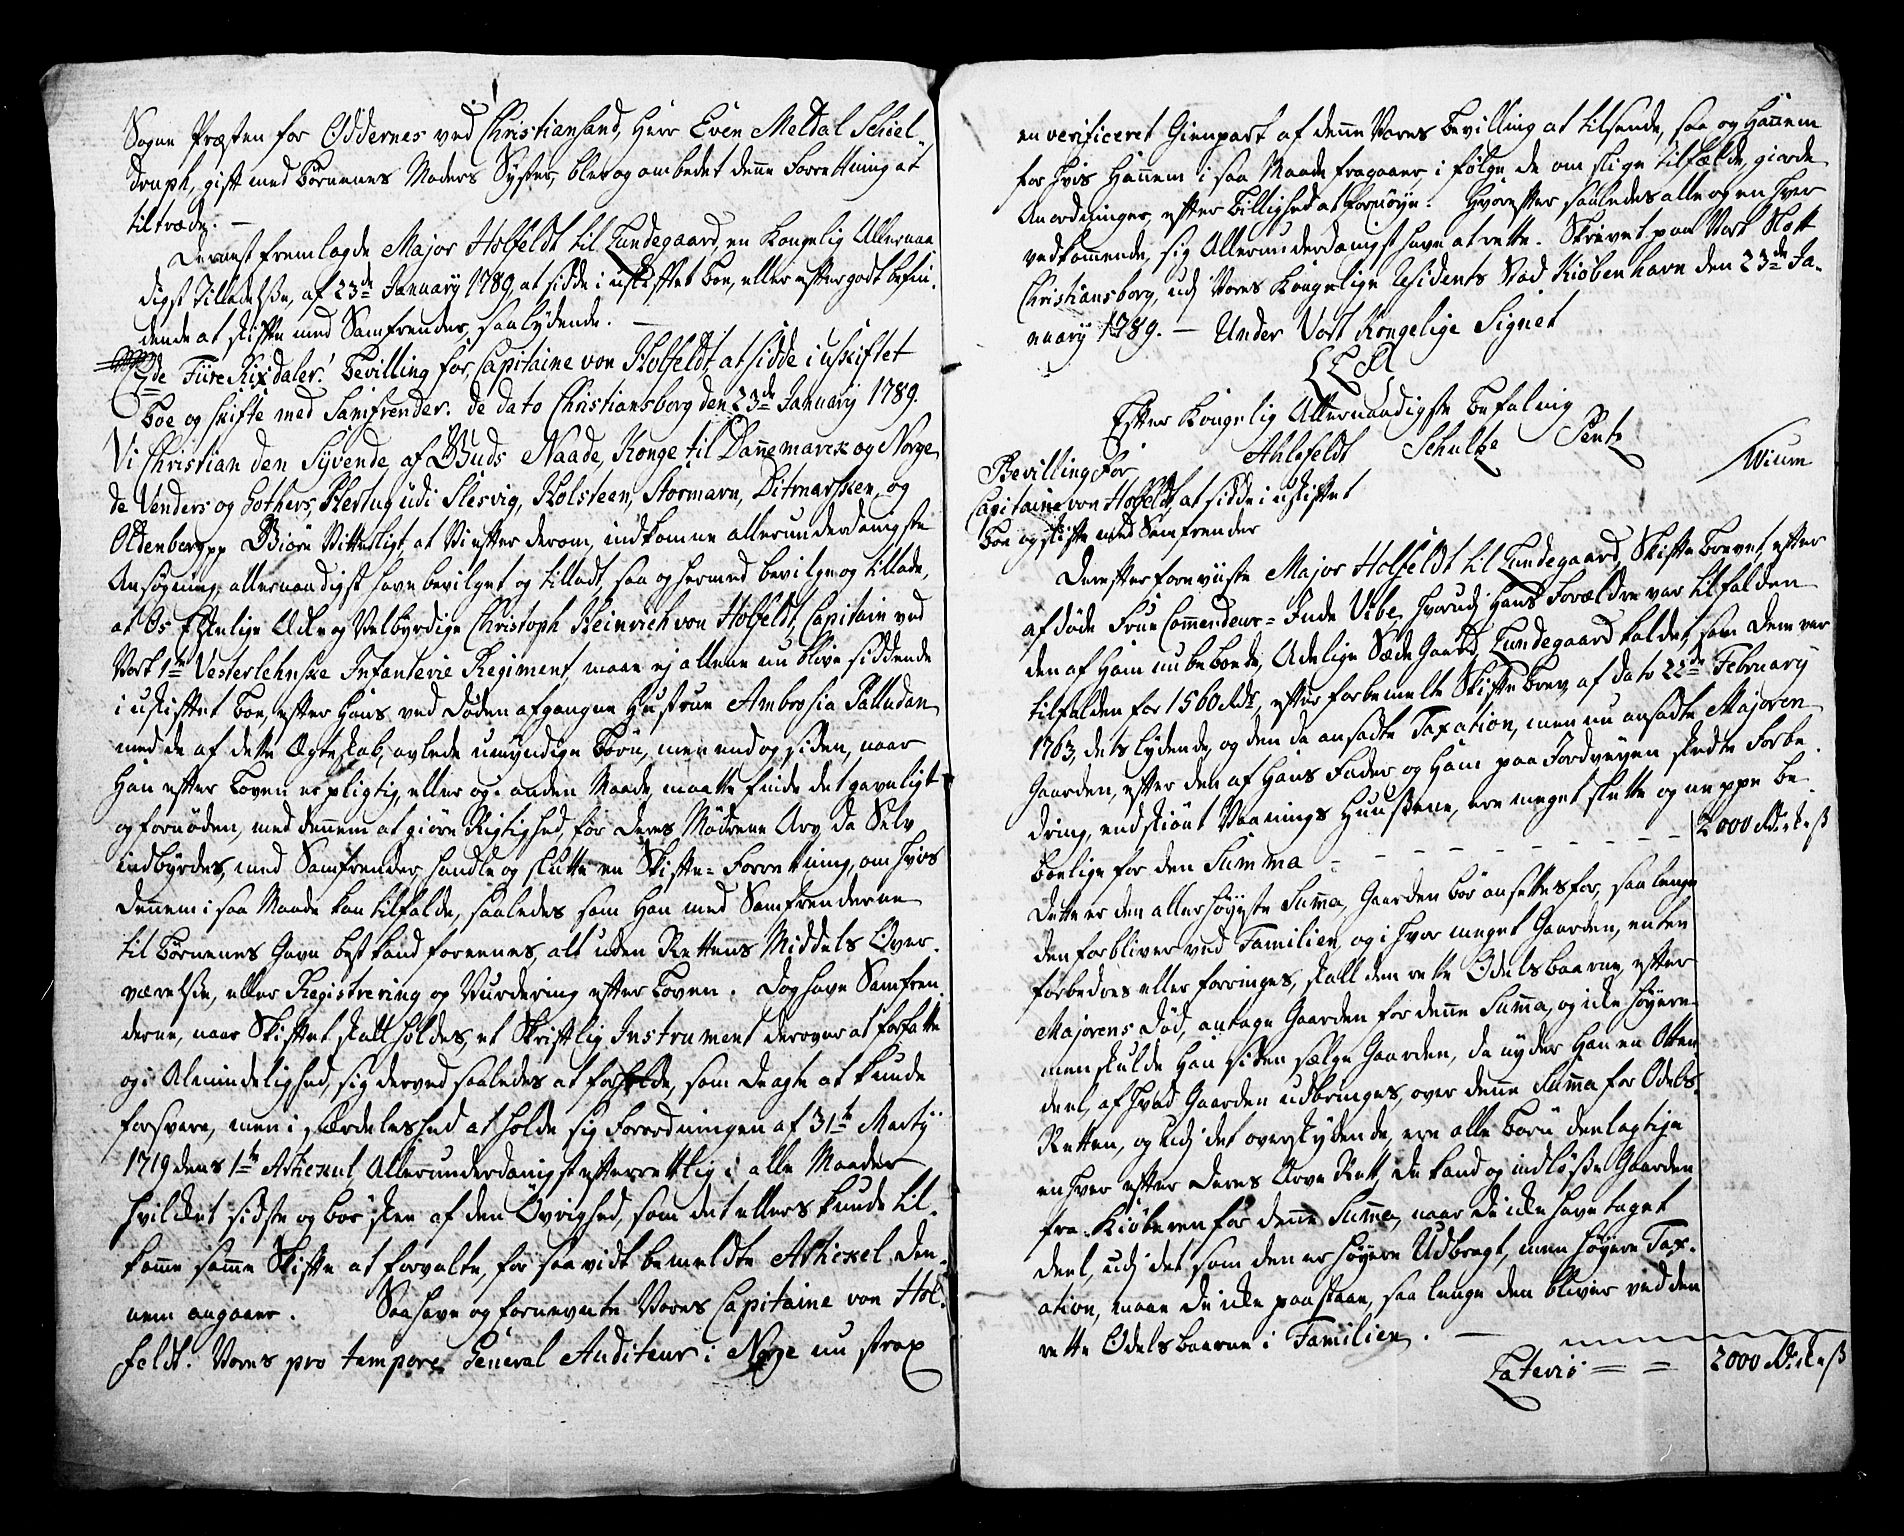 Sogne Præsten for Oddernes ved Christiansand, Herr Even Meldal Schiel-
druph, gift med Børnenes Moders Syster, blev og ombedet denne Forrettning at
tiltræde. —
Dernest fremlagde Major Holfeldt til Lundegaard, en Kongelig Allernaa
digst Tilladelse, af 23de January 1789, at sidde i uskifftet Boe, eller efter godt befin-
dende at skiffte med Samfrender, saalydende. —
Tyve Fiire Rixdaler. Bevilling for, Capitaine von Holfeldt, at sidde i uskiftet
Boe og skifte med Samfrender. de dato Christiansborg den 23de January 1789.
Vi Christian den Syvende, af Guds Naade, Konge til Dannemarck og Norge
de Venders og Gothers, Hertug udi Slesvig, Holsteen, Stormarn, Ditmarsken, og
Oldenborg pp Giøre Vitterligt, at Vi efter derom, indkomne allerunderdanigste
Ansøgning, allernaadigst have bevilget og tilladt, saa og hermed bevilge og tillade,
at Os Elskelige Ædle og Velbyrdige Christoph Heinrich von Holfeldt, Capitain ved
Vort 1te Vesterlehnske Infanterie Regiment, maae ej allene nu blive siddende
i uskiftet Boe, efter Hans ved Døden afgangne Hustrue Ambrosia Palludan
med de af dette Ægteskab, avlede umyndige Børn, men end og siden, naar
Han efter Loven er pligtig, eller og i anden Maade, maatte finde det gavnligt
og fornøden, med dennem at giøre Rigtighed, for deres Mødrene Arv, da Selv
indbyrdes, med Samfrender, handle og slutte en Skifte-Forretning, om hvis
dennem i saa Maade kan tilfalde, saaledes som Han med Samfrenderne
til Børnenes Gavn best kand foreenes, alt uden Rettens Middels Over-
værelse, eller Registrering og Vurdering efter Loven. Dog have Samfren
derne, naar Skiftet skall holdes, et Skriftlig Instrument derover at forfatte
og i Almindelighed, sig derved saaledes at forholde, som de agte at kunde
forsvare, men i særdeleshed at holde sig Forordningen af 31te Martÿ
1719 dens 1te Articul, Allerunderdanigst efterrettlig i alle Maader
hvilket sidste og bør skee af den Øvrighed, som det ellers kunde til-
komme samme Skifte at forvalte, for saavidt bemeldte Articel, den-
nem angaaer. Saa have og fornevnte Vores Capitaine von Hol-
feldt. Vores pro tempore General Auditeur i Norge nu strax
en verificeret Gienpart af denne Vores Bevilling at tilsende, saa og Hannem
for hvis Hannem i saa Maade fragaaer, i følge de om slige tilfælde, giorde
Anordninger, efter Billighed at fornøye. Hvorefter saaledes alle og en hver
vedkommende, sig Allerunderdanigst have at rette. Skrevet paa Vort Slott
Christiansborg, udj Vores Kongelige Residents Stad Kiøbenhavn den 23de Ja-
nuarÿ 1789. — Under Vort Kongelige Signet
(L.S.)
Efter Kongelig Allernaadigste Befaling
Ahlefeldt Schultze Sentz
Wium
Bevilling for
Capitaine von Holfeldt, at sidde i uskiftet
Boe og skifte med Samfrender
Derefter foreviiste Major Holfeldt til Lundegaard, Skifte Brevet efter
afdøde Frue Commendeur-Inde Vibe, hvorudj Hans Forældre var tilfalden
den af Ham nu beboede, Adelige Sæde Gaard, Lundegaard kaldet, som dem var
tilfalden for 1560 Rdr, efter forbemelte Skifte Brev af dato 22de February
1763, dets lydende, og den da ansadte Taxation, men nu ansadte Majoren
Gaarden, efter den af Hans Fader og Ham paa Jordveyen skedte Forbe-
dring, endskiønt Vaanings Huusene, ere meget slette og neppe be-
boelige for den Summa - - - - - - - - - 2000 Rdr „ s „ ß
Dette er den allerhøyeste Summa, Gaarden bør ansettes for, saa lenge
den forbliver ved Familien, og i hvor meget Gaarden, enten
forbedres eller forringes, skall den rette Odelsbaarne, efter
Majorens Død, antage Gaarden for denne Summa, og icke høyere
men skulde Han siden sælge Gaarden, da nyder Han en Otten
deel, af hvad Gaarden udbringes, over denne Summa for Odels-
Retten, og udj det overskydende, ere alle Børn deelagtige
en hver efter deres Arve Rett, de kand og indløse Gaarden
fra Kiøberen for denne Summa, naar de icke have taget
deel, udj det som den er høyere Udbragt, men høyere Tax-
ation, maae de icke paastaae, saa lenge den bliver ved den
rette Odelsbaarne i Familien. —
Lateris = = 2000 Rdr „ s „ ß